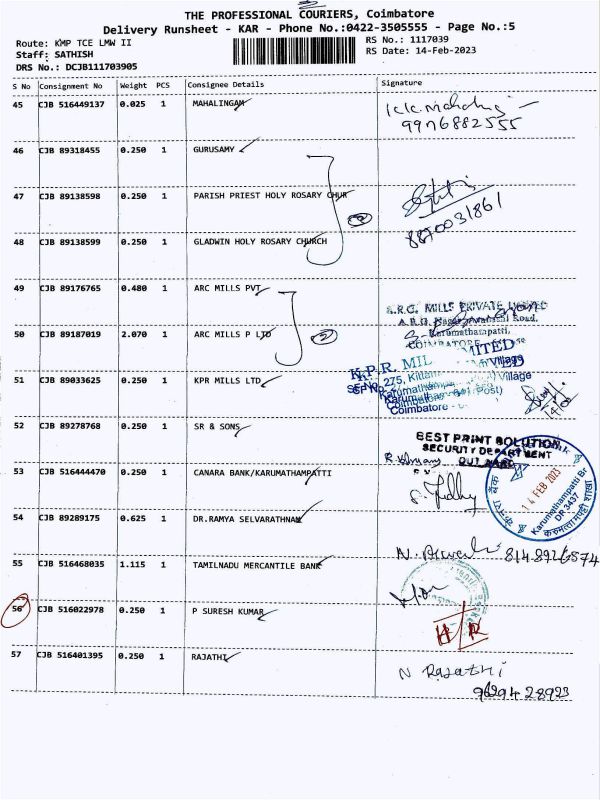 THE PROFESSIONAL COURIERS, Coimbatore
Delivery Runsheet - KAR - Phone No.:0422-3505555 - Page No.:5
Route: KMP TCE LMW II
RS No.: 1117039
Staff: SATHISH
RS Date: 14-Feb-2023
DRS No.: DCJB111703905
S No Consignment No Weight PCS Consignee Details Signature
45 CJB 516449137 0.025 1 MAHALINGAM
9976882555
46 CJB 89318455 0.250 1 GURUSAMY
47 CJB 89138598 0.250 1 PARISH PRIEST HOLY ROSARY CHUR
8870031861
48 CJB 89138599 0.250 1 GLADWIN HOLY ROSARY CHURCH
49 CJB 89176765 0.480 1 ARC MILLS PVT
A.R.C. MILLS PRIVATE LIMITED
Karumathampatti,
50 CJB 89187019 2.070 1 ARC MILLS P LTD
2
COIMBATORE
K.P.R. MIL LIMITED
51 CJB 89033625 0.250 1 KPR MILLS LTD
275, Village
Coimbatore -
52 CJB 89278768 0.250 1 SR & SONS
BEST PRINT SOLUTION
SECURITY DEPARTMENT
53 CJB 516444470 0.250 1 CANARA BANK/KARUMATHAMPATTI
14 FEB 2023
Karumathampatti Br
DP 3437
54 CJB 89289175 0.625 1 DR.RAMYA SELVARATHNAM
8148926574
55 CJB 516468035 1.115 1 TAMILNADU MERCANTILE BANK
56 CJB 516022978 0.250 1 P SURESH KUMAR
H/R
57 CJB 516401395 0.250 1 RAJATHI
N Rajathi
9629428923